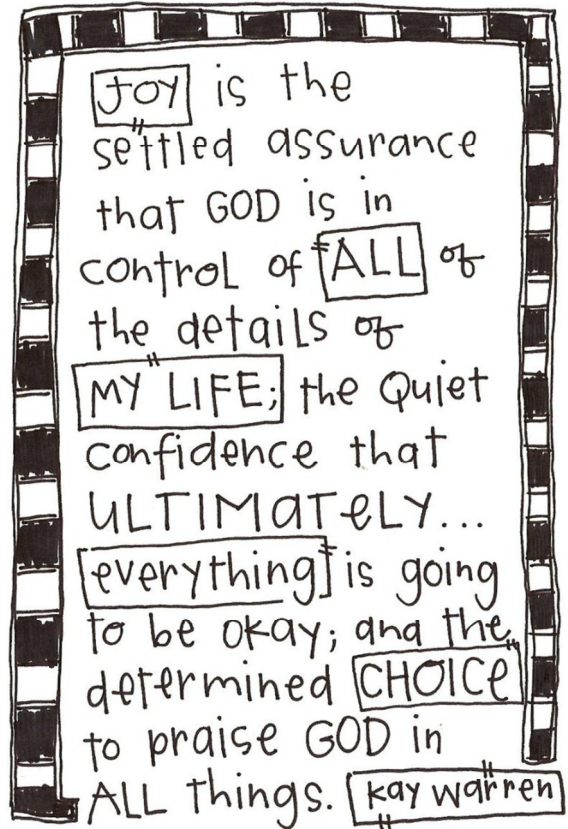 JOY is the
settled assurance
that GOD is in
control of ALL of
the details of
MY LIFE; the Quiet
confidence that
ULTIMATELY...
everything is going
to be okay; and the
determined CHOICE
to praise GOD in
ALL things. kay warren